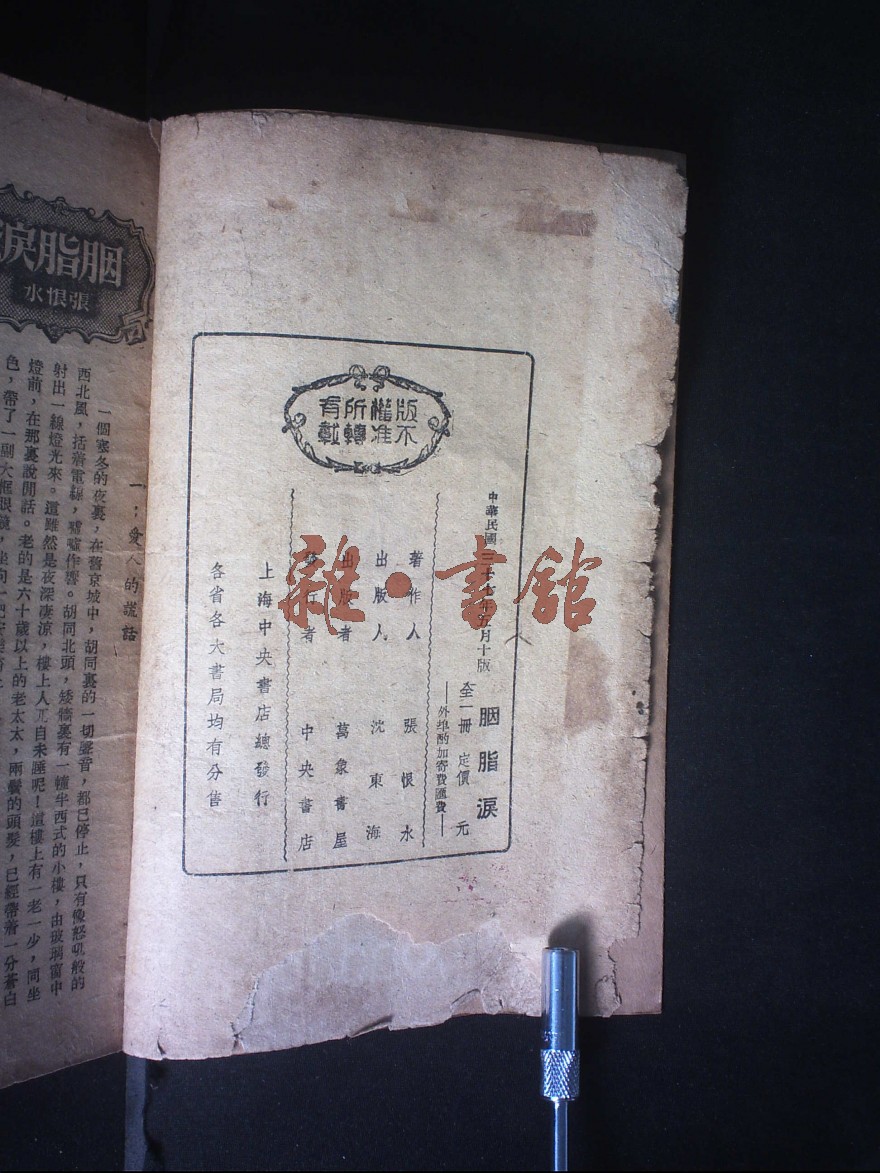 版權所有
不准轉載
中華民國三十七年五月十版
胭脂淚
全一冊 定價 元
——外埠酌加寄費匯費——
著作人 張恨水
出版人 沈東海
出版者 萬象書屋
發行者 中央書店
上海中央書店總發行
各省各大書局均有分售
雜·書館
胭脂淚
張恨水
一；愛人的謊話
一個寒冬的夜裏，在舊京城中，胡同裏的一切聲音，都已停止，只有像怒吼般的
西北風，括着電線，噓噓作響。胡同北頭，矮牆裏有一幢半西式的小樓，由玻璃窗中
射出一線燈光來。這雖然是夜深凄涼，樓上人兀自未睡呢！這樓上有一老一少，同坐
燈前，在那裏說閒話。老的是六十歲以上的老太太，兩鬢的頭髮，已經帶着一分蒼白
色，帶了一副大框眼鏡，坐向一把安樂椅上